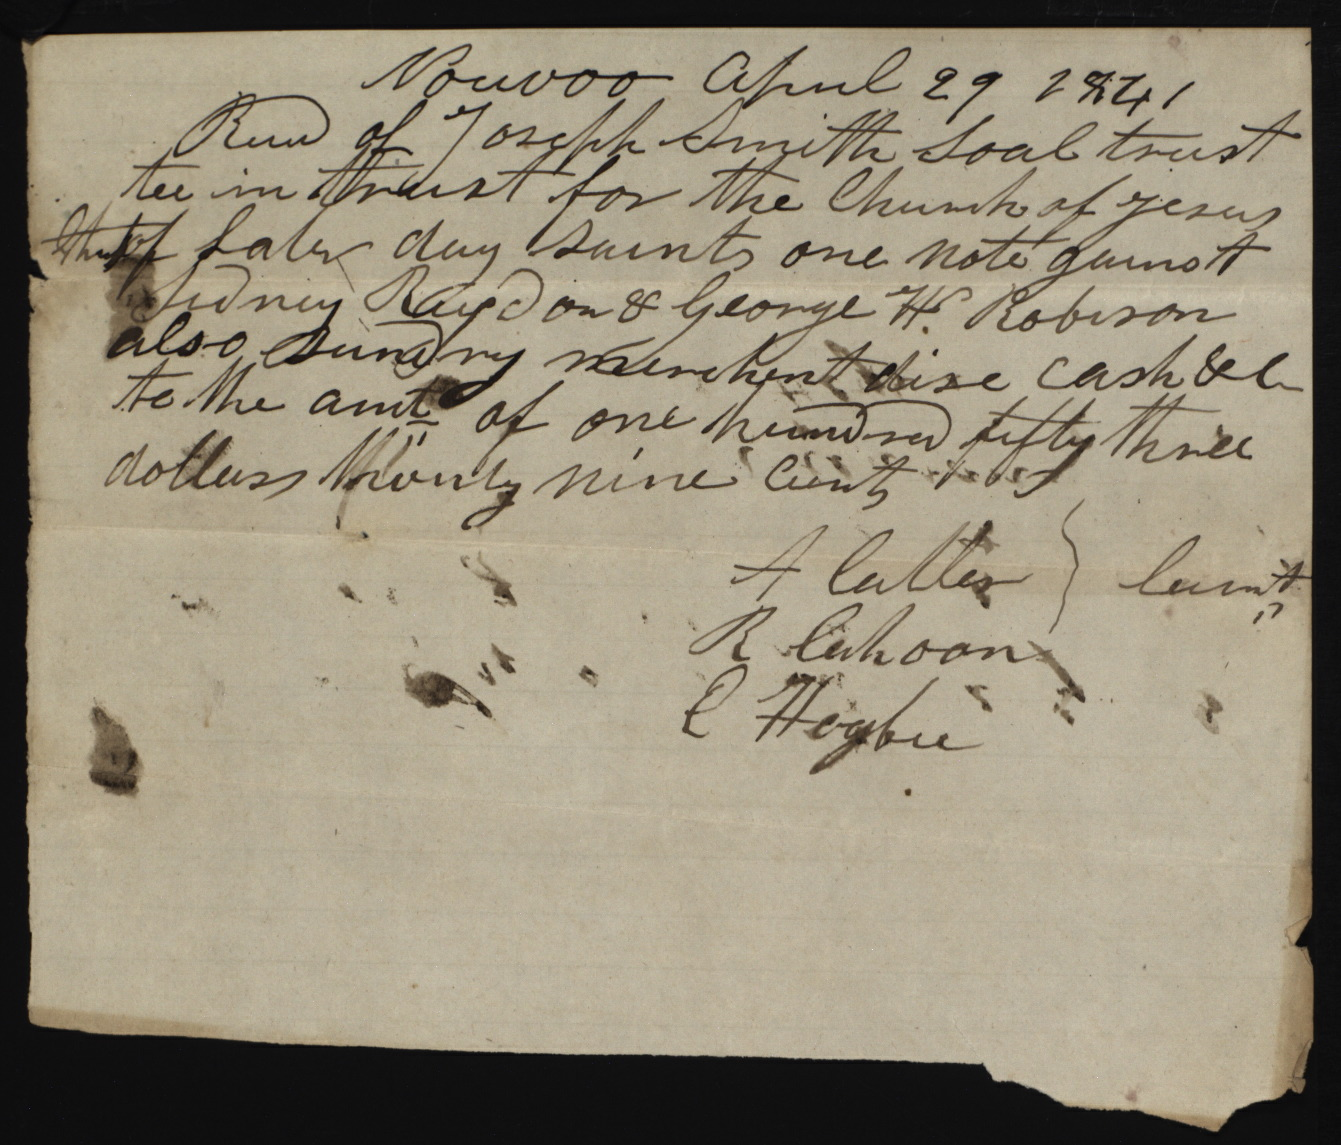 Nouvoo April 29 1841
Recd of Joseph Smith Soal trust
tee in trust for the Church of Jesus
Christ of Later day Saints one note gainst
Sidney Ragdon & George W. Robison
also sundry merchentdise cash &c
to the amt of one hundred fifty three
dollars twenty nine cents
A Cutler } Comt
R Cahoon
E Hogbie